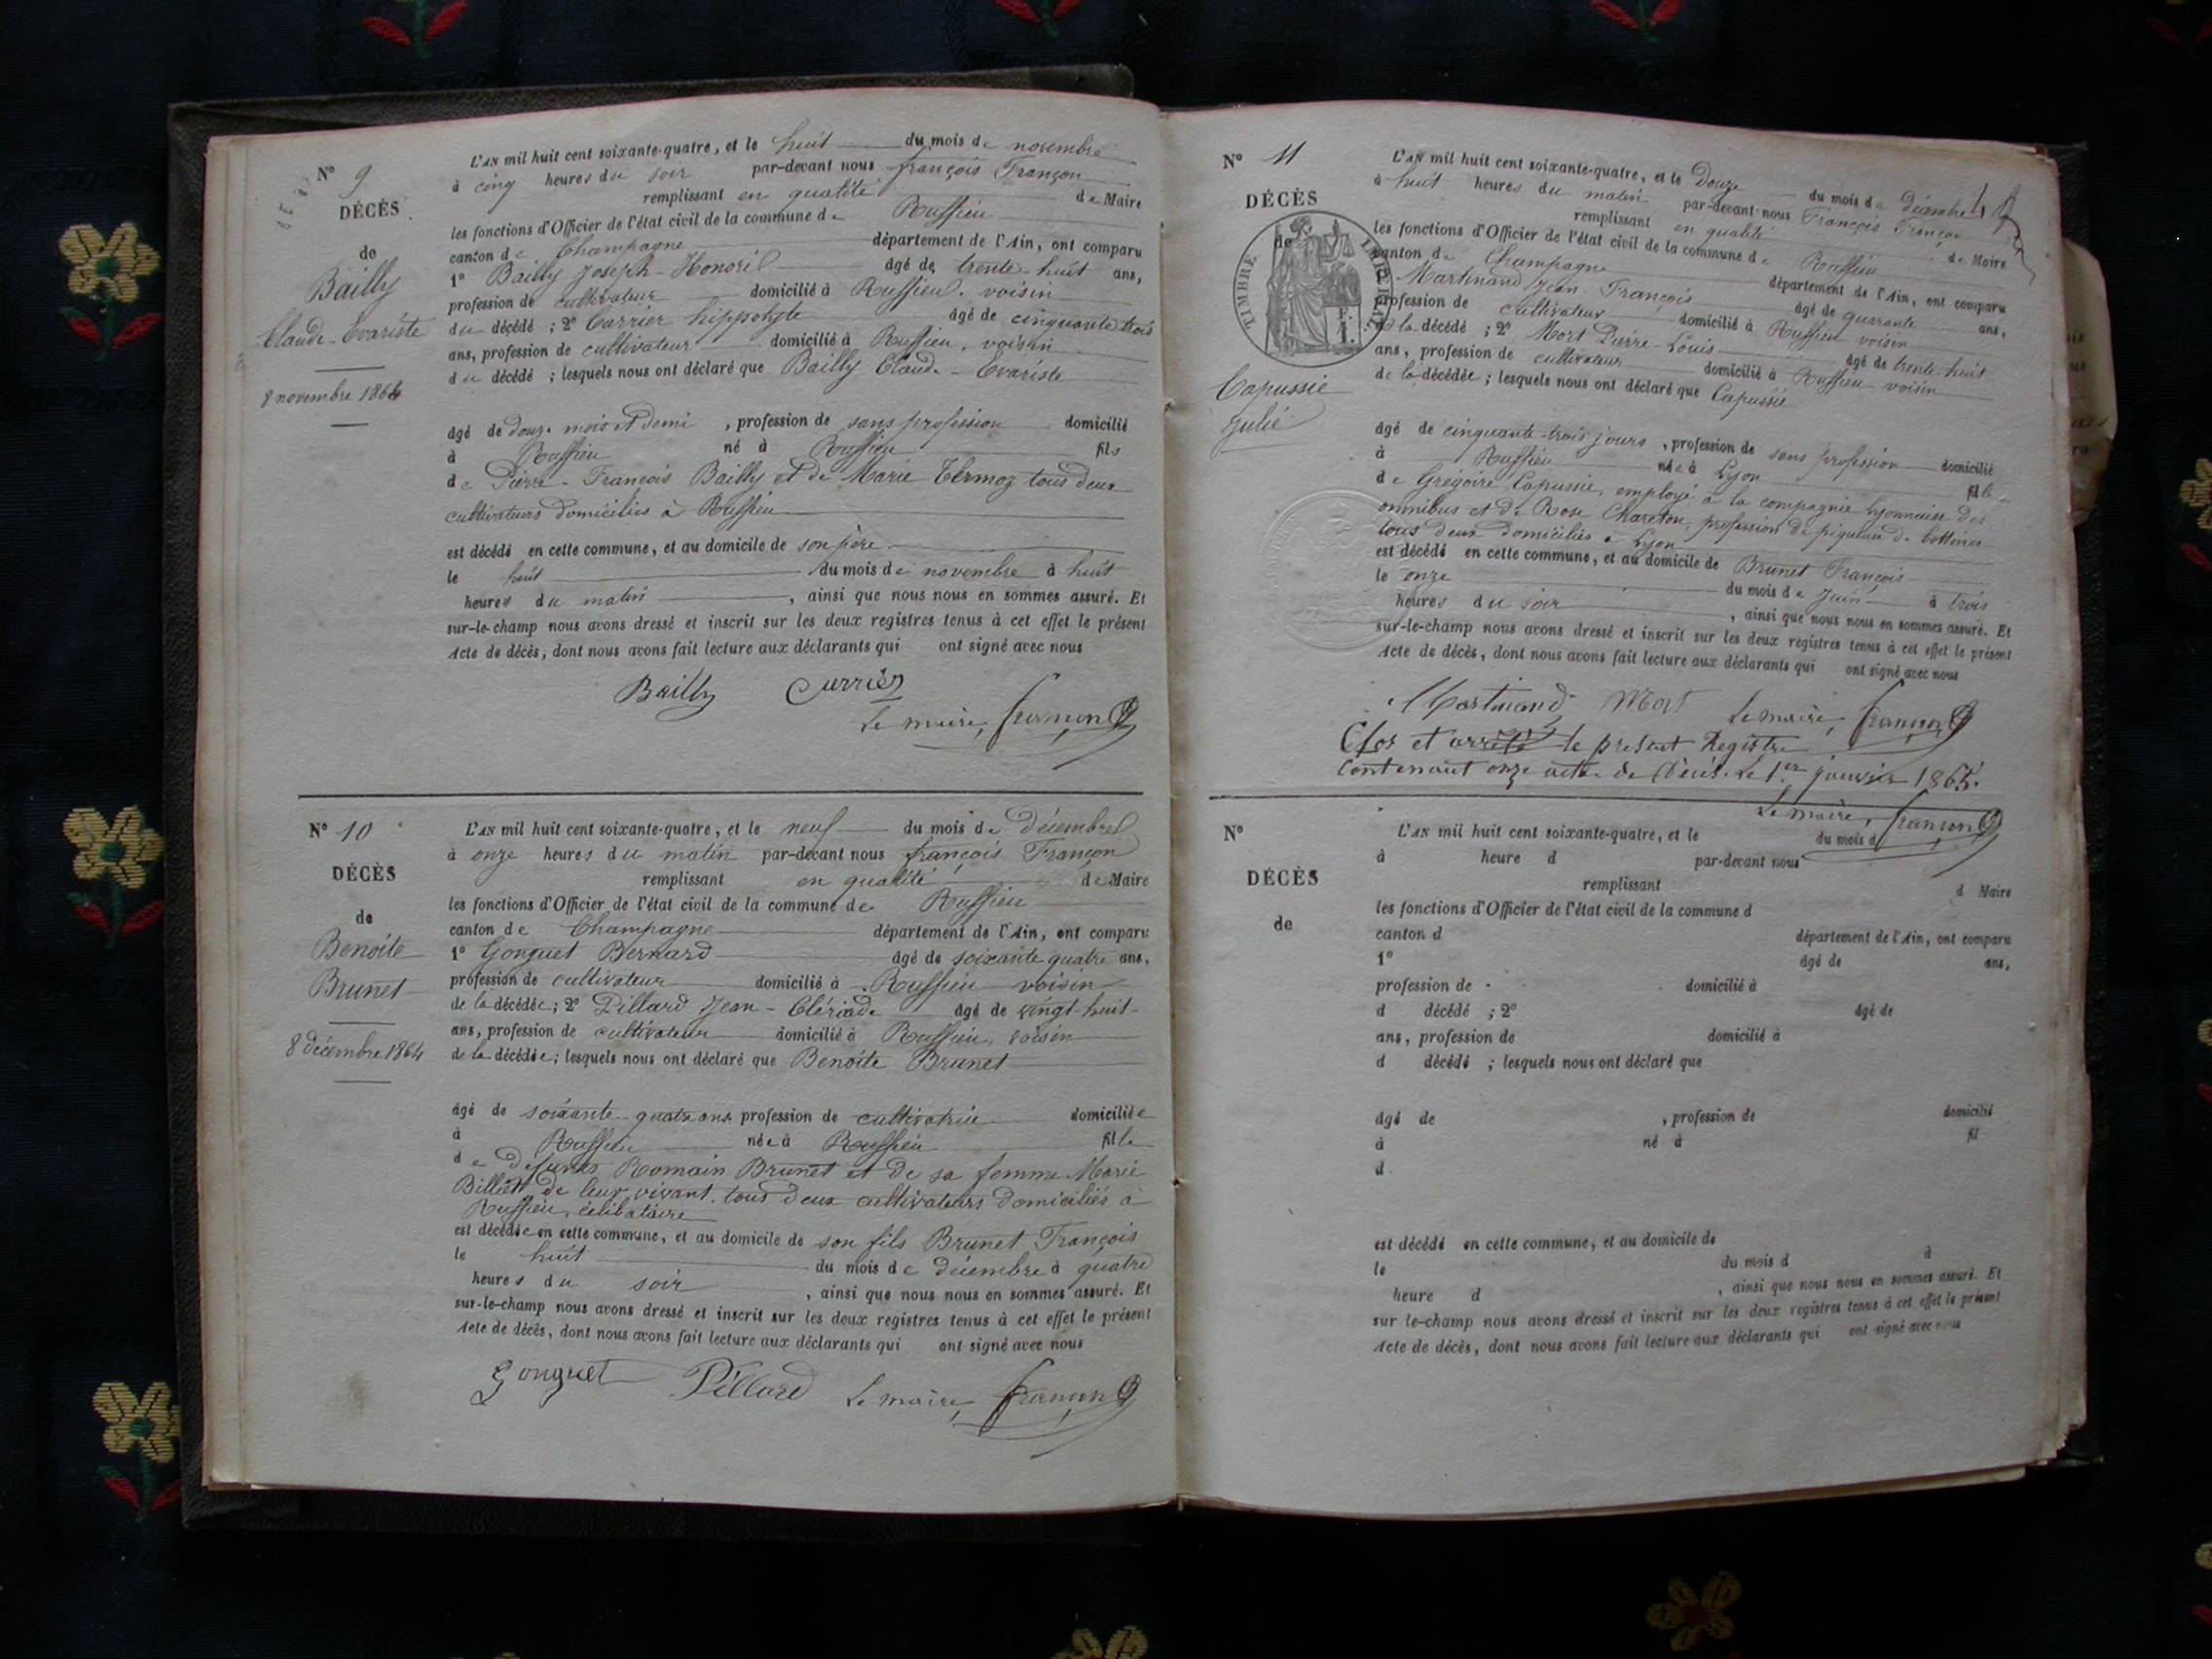 N° 9
DÉCÈS
de
Bailly
Claude-Evariste
8 novembre 1864
L'AN mil huit cent soixante-quatre, et le huit du mois de novembre
à cinq heures du soir par-devant nous françois Françon
remplissant en qualité de Maire
les fonctions d'Officier de l'état civil de la commune de Ruffieu
canton de Champagne département de l'Ain, ont comparu
1° Bailly Joseph-Honoré âgé de trente-huit ans,
profession de cultivateur domicilié à Ruffieu. voisin
du décédé ; 2° Carrier hippolyte âgé de cinquante trois
ans, profession de cultivateur domicilié à Ruffieu, voisin
du décédé ; lesquels nous ont déclaré que Bailly Claude-Evariste
âgé de douze mois et demi , profession de sans profession domicilié
à Ruffieu né à Ruffieu fils
de Pierre-François Bailly et de Marie Thermoz tous deux
cultivateurs domiciliés à Ruffieu
est décédé en cette commune, et au domicile de son père
le huit du mois de novembre à huit
heures du matin , ainsi que nous nous en sommes assuré. Et
sur-le-champ nous avons dressé et inscrit sur les deux registres tenus à cet effet le présent
Acte de décès, dont nous avons fait lecture aux déclarants qui ont signé avec nous
Bailly Currier
Le maire, françon
N° 10
DÉCÈS
de
Benoite
Brunet
8 décembre 1864
L'AN mil huit cent soixante-quatre, et le neuf du mois de Décembre
à onze heures du matin par-devant nous françois Françon
remplissant en qualité de Maire
les fonctions d'Officier de l'état civil de la commune de Ruffieu
canton de Champagne département de l'Ain, ont comparu
1° Gonguet Bernard âgé de soixante quatre ans,
profession de cultivateur domicilié à Ruffieu voisin
de la décédée ; 2° Pillard Jean-Clériade âgé de vingt-huit
ans, profession de cultivateur domicilié à Ruffieu, voisin
de la décédée ; lesquels nous ont déclaré que Benoite Brunet
âgé de soixante quatre ans profession de cultivatrice domiciliée
à Ruffieu née à Ruffieu fille
de défunts Romain Brunet et de sa femme Marie
Billiet de leur vivant tous deux cultivateurs domiciliés à
Ruffieu, célibataire
est décédée en cette commune, et au domicile de son fils Brunet François
le huit du mois de décembre à quatre
heures du soir , ainsi que nous nous en sommes assuré. Et
sur-le-champ nous avons dressé et inscrit sur les deux registres tenus à cet effet le présent
Acte de décès, dont nous avons fait lecture aux déclarants qui ont signé avec nous
Gonguet Pillard Le maire, françon
N° 11
DÉCÈS
de
TIMBRE IMPÉRIAL
Capussie
Julie
L'AN mil huit cent soixante-quatre, et le Douze du mois de décembre
à huit heures du matin par-devant nous François Françon
remplissant en qualité de Maire
les fonctions d'Officier de l'état civil de la commune de Ruffieu
canton de Champagne département de l'Ain, ont comparu
Martinand Jean François âgé de quarante ans,
profession de cultivateur domicilié à Ruffieu voisin
de la décédé ; 2° Mort Pierre-Louis âgé de trente-huit
ans, profession de cultivateur domicilié à Ruffieu voisin
de la décédée ; lesquels nous ont déclaré que Capussie
âgé de cinquante-trois jours , profession de sans profession domicilié
à Ruffieu née à Lyon fille
de Grégoire Capussie, employé à la compagnie Lyonnaise des
omnibus et de Rose Chareton, profession de piqueuse de bottines
tous deux domiciliés à Lyon
est décédé en cette commune, et au domicile de Brunet François
le onze du mois de Juin à trois
heures du soir , ainsi que nous nous en sommes assuré. Et
sur-le-champ nous avons dressé et inscrit sur les deux registres tenus à cet effet le présent
Acte de décès, dont nous avons fait lecture aux déclarants qui ont signé avec nous
Martinand Mort Le maire, françon
Clos et arrêté le présent Registre
Contenant onze acte de Décès. Le 1er janvier 1865.
Le maire, françon
N°
DÉCÈS
de
L'AN mil huit cent soixante-quatre, et le du mois d
à heure d par-devant nous
remplissant d Maire
les fonctions d'Officier de l'état civil de la commune d
canton d département de l'Ain, ont comparu
1° âgé de ans,
profession de domicilié à
d décédé ; 2° âgé de
ans, profession de domicilié à
d décédé ; lesquels nous ont déclaré que
âgé de , profession de domicilié
à né à fil
d
est décédé en cette commune, et au domicile de
le du mois d à
heure d , ainsi que nous nous en sommes assuré. Et
sur le-champ nous avons dressé et inscrit sur les deux registres tenus à cet effet le présent
Acte de décès, dont nous avons fait lecture aux déclarants qui ont signé avec nous